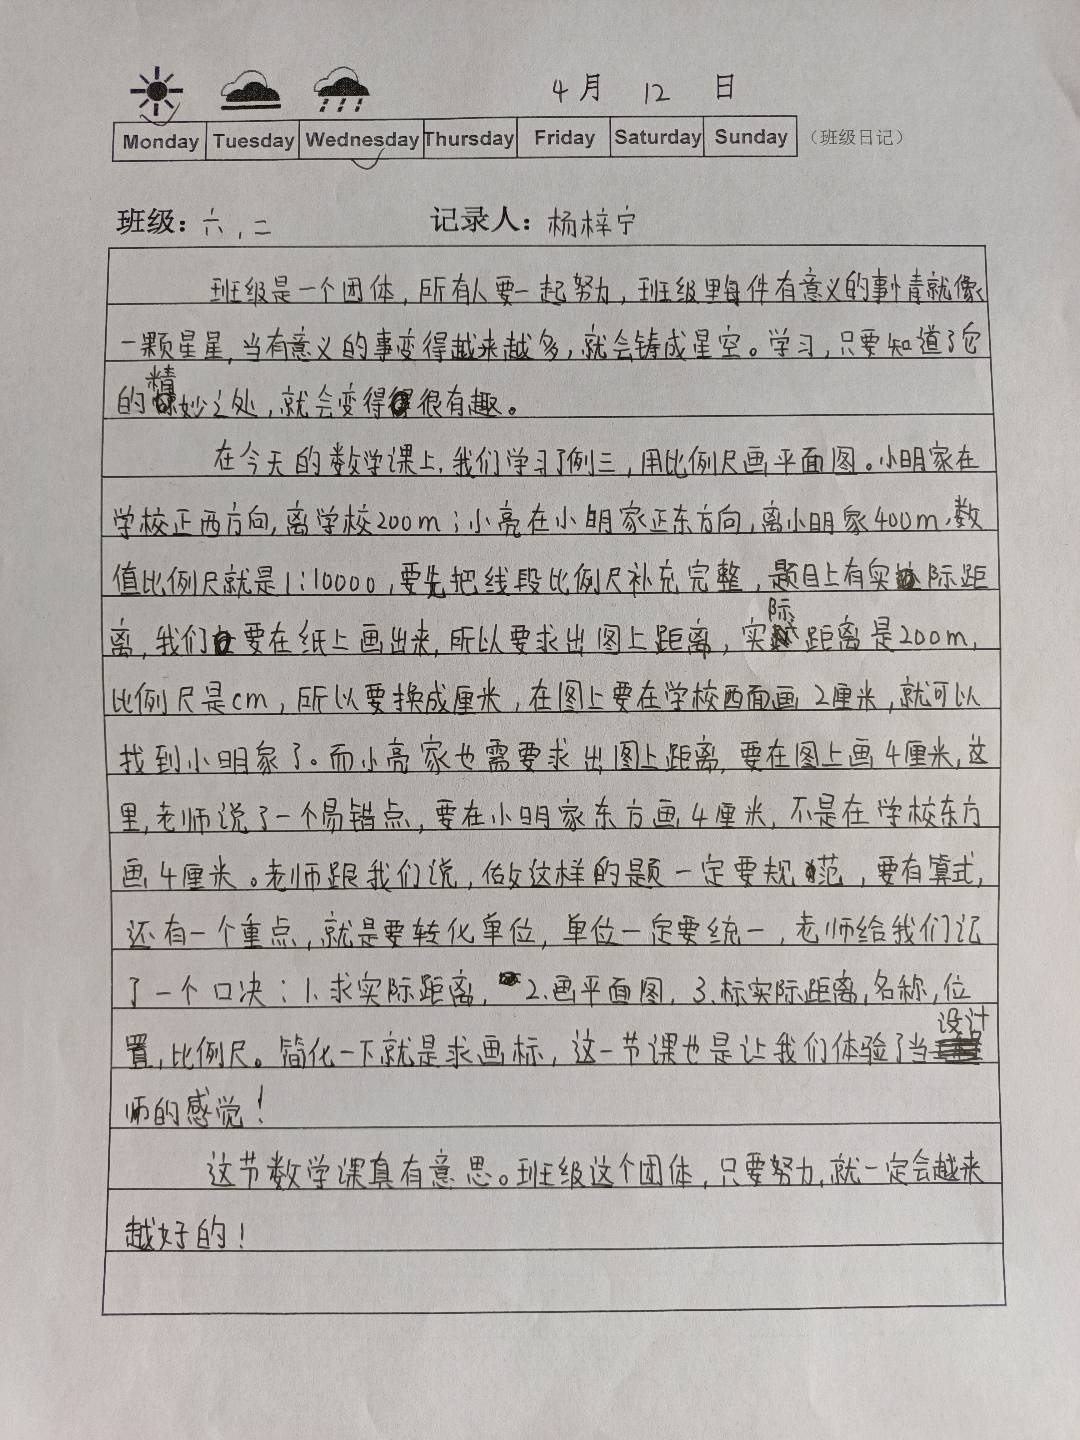 4月 12 日
Monday Tuesday Wednesday Thursday Friday Saturday Sunday （班级日记）
班级：六，二 记录人：杨梓宁
班级是一个团体，所有人要一起努力，班级里每件有意义的事情就像
一颗星星，当有意义的事变得越来越多，就会铸成星空。学习，只要知道了它
的精妙之处，就会变得很有趣。
在今天的数学课上，我们学习了例三，用比例尺画平面图。小明家在
学校正西方向，离学校200m；小亮在小明家正东方向，离小明家400m，数
值比例尺就是1:10000，要先把线段比例尺补充完整，题目上有实际距
离，我们要在纸上画出来，所以要求出图上距离，实际距离是200m，
比例尺是cm，所以要换成厘米，在图上要在学校西面画2厘米，就可以
找到小明家了。而小亮家也需要求出图上距离，要在图上画4厘米，这
里，老师说了一个易错点，要在小明家东方画4厘米，不是在学校东方
画4厘米。老师跟我们说，做这样的题一定要规范，要有算式，
还有一个重点，就是要转化单位，单位一定要统一，老师给我们记
了一个口决：1.求实际距离，2.画平面图，3.标实际距离，名称，位
置，比例尺。简化一下就是求画标，这一节课也是让我们体验了当设计
师的感觉！
这节数学课真有意思。班级这个团体，只要努力，就一定会越来
越好的！